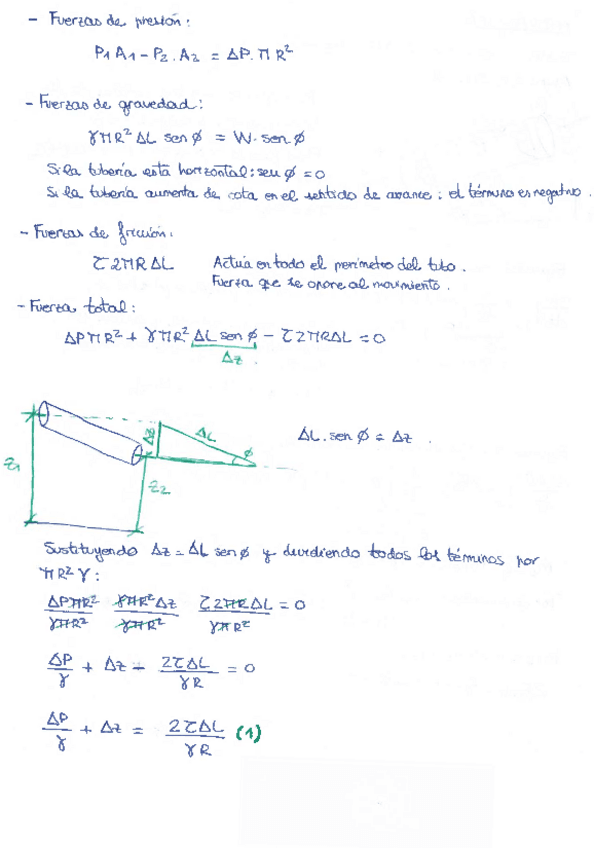 - Fuerzas de presión:
P1 A1 - P2 . A2 = ΔP. π R²
- Fuerzas de gravedad:
γπR² ΔL sen ϕ = W. sen ϕ
Si la tubería está horizontal: sen ϕ = 0
Si la tubería aumenta de cota en el sentido de avance: el término es negativo.
- Fuerzas de fricción:
τ2πRΔL Actúa en todo el perímetro del tubo.
Fuerza que se opone al movimiento.
- Fuerza total:
ΔPπR² + γπR² ΔL sen ϕ - τ2πRΔL = 0
Δz.
Δz ΔL ϕ ΔL . sen ϕ = Δz .
z1 z2
Sustituyendo Δz = ΔL sen ϕ y dividiendo todos los términos por
πR²γ:
ΔPπR²/γπR² γπR²Δz/γπR² τ2πRΔL/γπR² = 0
ΔP/γ + Δz - 2τΔL/γR = 0
ΔP/γ + Δz = 2τΔL/γR (1)